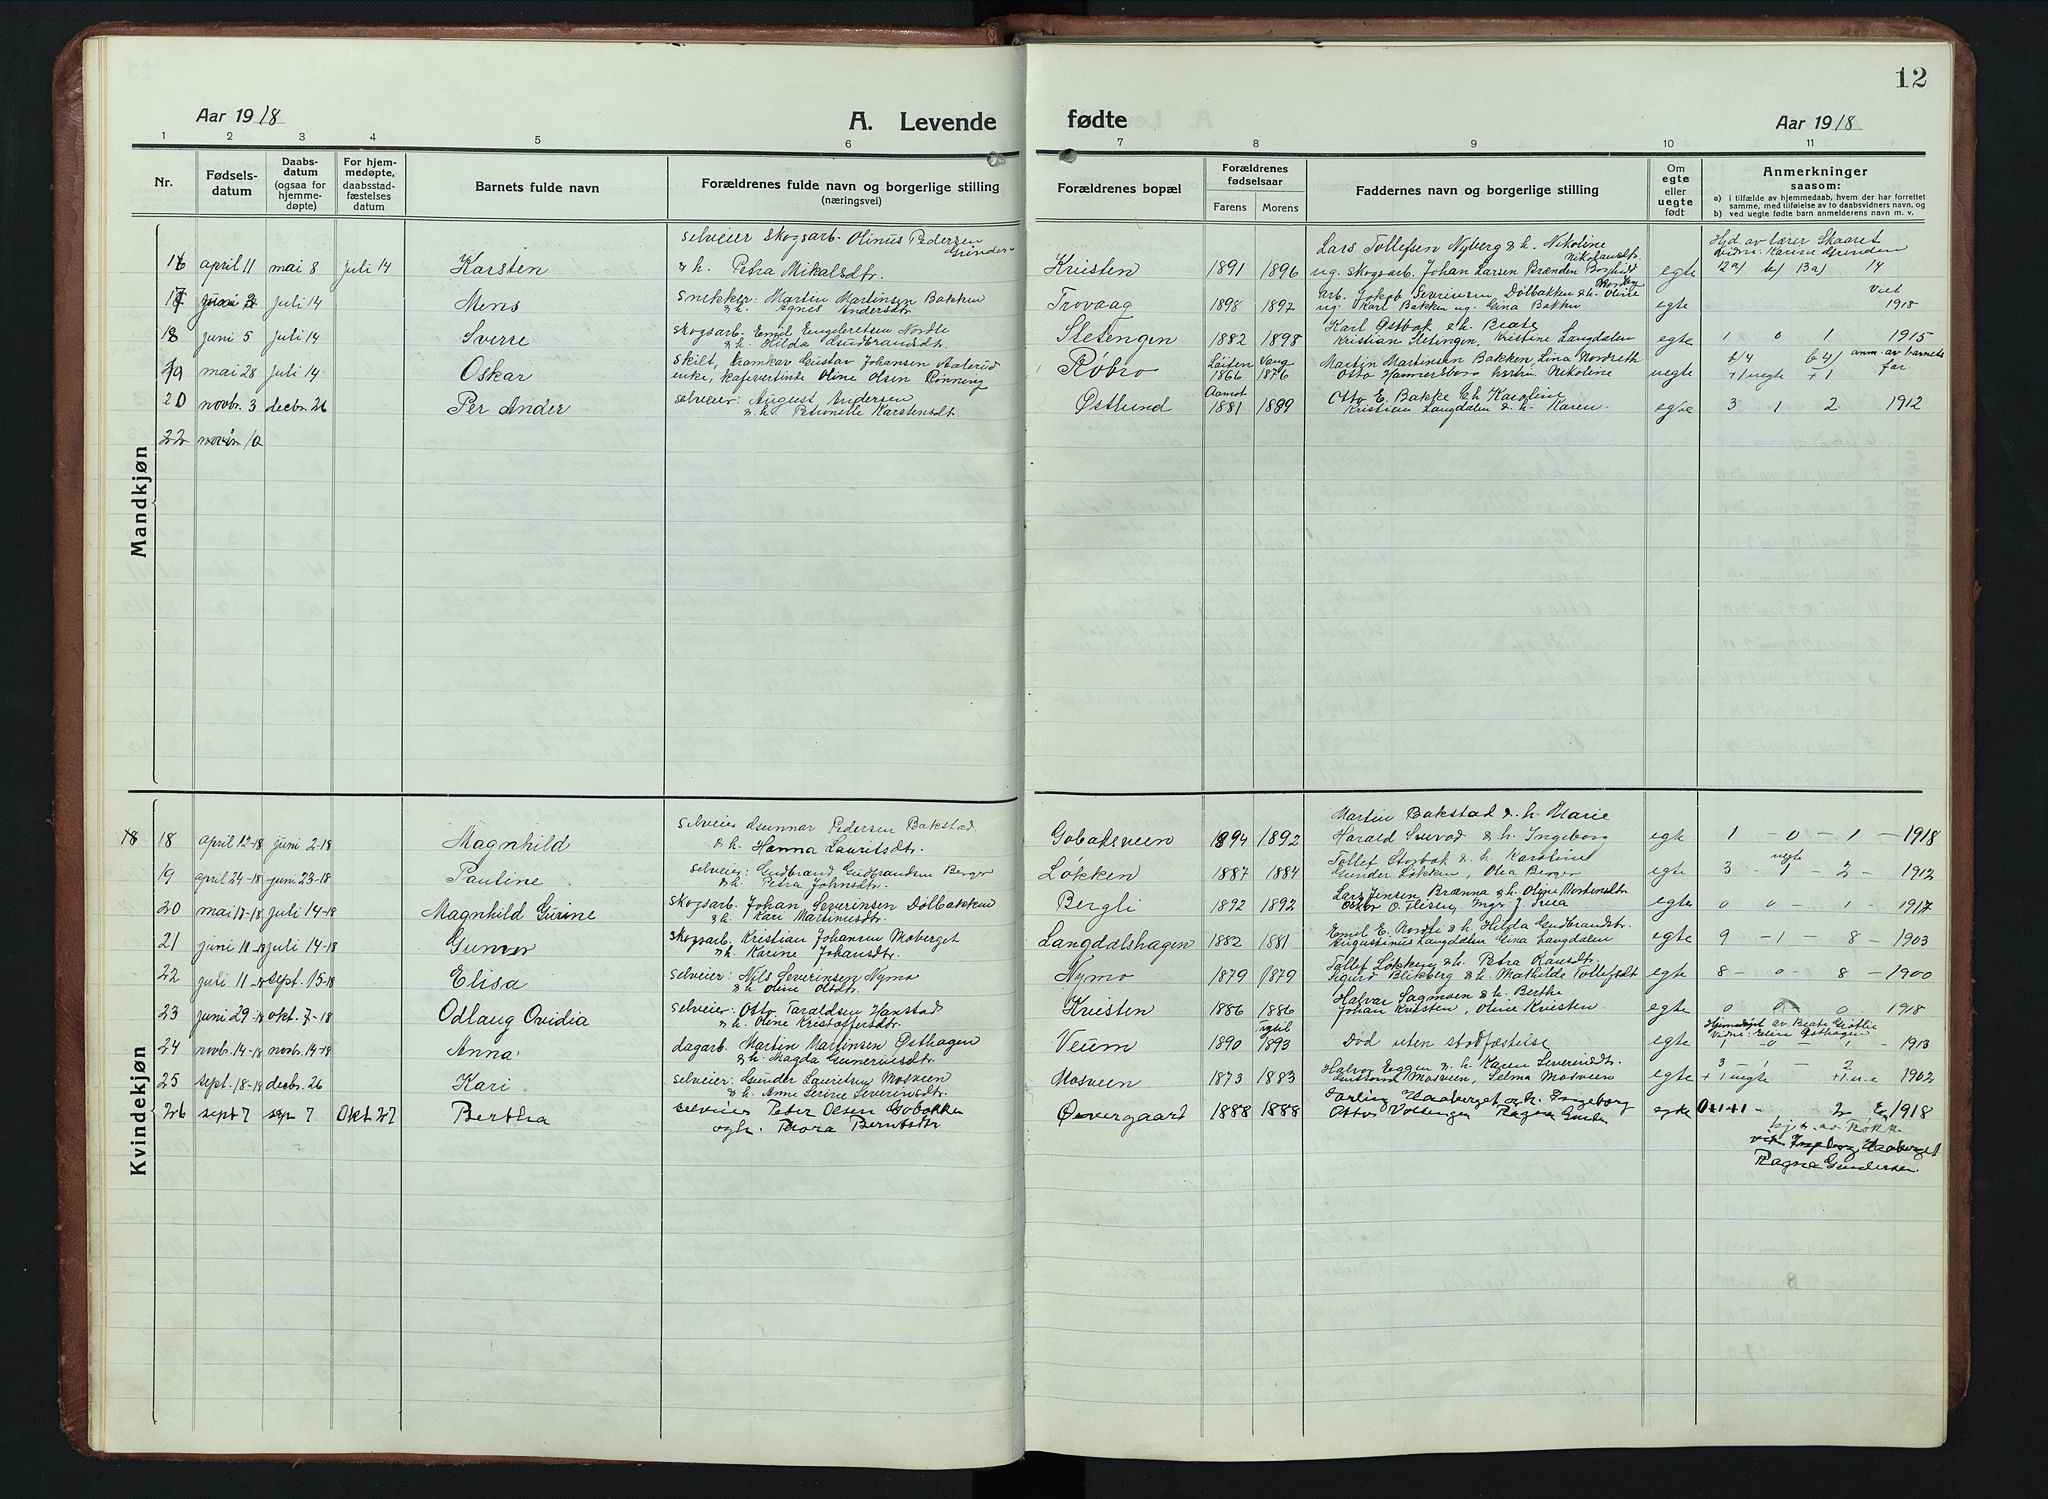 Aar 1918
A. Levende
1 2 3 4 5 6
Nr. Fødsels-datum Daabs-datum (ogsaa for hjemme-døpte) For hjem-medøpte, daabsstad-fæstelses datum Barnets fulde navn Forældrenes fulde navn og borgerlige stilling (næringsvei)
Mandkjøn
selveier skogsarb. Olinus Pedersen Grinder
16 april 11 mai 8 juli 14 Karsten & h. Petra Mikalsdtr.
17 juni 2 juli 14 Mens snekker Martin Martinsen Bakken
& h. Agnes Andersdtr.
18 juni 5 juli 14 Sverre skogsarb. Emil Engebretsen Nordli
& h. Hilda Gudbrandsdt.
19 mai 28 juli 14 Oskar skilt, Gustav Johansen Aalerud
enke, kafevertinde Oline Olsen Rønning
20 novbr. 3 decbr. 26 Per Ander selveier: August Andersen
& h. Petronelle Karstensdt.
22 10
Kvindekjøn
selveier Gunnar Pedersen Bakstad
18 18 april 12-18 juni 2-18 Magnhild & h. Hanna Lauritsdtr.
19 april 24-18 juni 23-18 Pauline selveier: Gudbrand Gudbrandsen Berger
& h. Petra Johnsdtr.
20 mai 17-18 juli 14-18 Magnhild Girine skogsarb. Johan Severinsen Dølbakken
& h. Kari Martinusdtr.
21 juni 11-18 juli 14-18 Gunvor skogsarb. Kristian Johansen Moberget
& h. Karine Johansdtr.
22 juli 11-18 sept. 15-18 Elisa selveier: Nils Severinsen Nymo
& h. Oline Olsdtr.
23 juni 29-18 okt. 7-18 Odlaug Ovidia selveier: Otto Taraldsen Hanstad
& h. Oline Kristoffersdtr.
24 novbr. 14-18 novbr. 14-18 Anna dagarb. Martin Martinsen Østhagen
& h. Magda Gunneriusdtr.
25 sept. 18-18 decbr. 26 Kari selveier: Gunder Lauritsen Mosveen
& h. Anne Serine Severinsdtr.
26 sept 7 sep 7 Okt 27 Bertha selveier Peter Olsen Gobakken
og h. Thora Berntsdtr
12
fødte
Aar 1918
7 8 9 10 11
Forældrenes bopæl Forældrenes fødselsaar Farens Morens Faddernes navn og borgerlige stilling Om egte eller uegte født Anmerkninger saasom:
a) i tilfælde av hjemmedaab, hvem der har forrettet samme, med tilføielse av to daabsvidners navn, og
b) ved uegte fødte barn anmelderens navn m. v.
Lars Tollefsen Nyberg & h. Nikoline Nikolausdtr. Hjd. av lærer Skaaret
Kvisten 1891 1896 ug. skogsarb. Johan Larsen Brænden Borghild egte 12a) b) 13a) 14
Trovaag 1898 1892 arb. Jakob Severinsen Dølbakken & h. Oline egte Viet 1918
ug. Karl Bakken ug. Gina Bakken
Sletengen 1882 1898 Karl Østbak & h. Beate
Kristian Sletingen, Kristine Langdalen egte 1 0 1 1915
Røbro Løiten 1866 Vang 1876 Martin Martinsen Bakken, Lina Nordseth
Otto Hammersborg hustru Nikoline uegte b/4 b4) anm. av barnets far.
+1 uegte +1
Østlund Aamot 1881 1889 Otto E. Bakke & h. Karoline
Kristian Langdalen & h. Karen. egte 3 1 2 1912
Martin Bakstad & h. Marie
Gobaksveen 1894 1892 Harald & h. Ingeborg egte 1 - 0 - 1 - 1918
Løkken 1887 1884 Tollef Storbak & h. Karoline
Gunder Løkken, Olea Berger egte 3 - uegte 1 - 2 - 1912
Bergli 1892 1892 Lars Jensen Brænna & h. Oline Mortensdtr
Oskar O. Ilisen, Inger J. egte 0 - 0 - 1 - 1917
Langdalshagen 1882 1881 Emil E. Nordli & h. Hilda Gudbrandsdtr.
Augustinus Langdalen Gina Langdalen egte 9 - 1 - 8 - 1903
Nymo 1879 1879 Tollef Løkberg & h. Petra
Sigurd Blikberg & h. Mathilde Tollefsdt egte 8 - 0 - 8 - 1900
Kvisten 1886 1886 Halvar Sagmoen & h. Berthe
Johan Kvisten, Oline Kvisten egte 0 0 0 1918
Veum 1890 Trysil 1893 Død uten stadfæstelse egte Hjemdøpt av Beate Grøtlie
Østhagen
1 - 0 - 1 - 1913
Mosveen 1873 1883 Halvor Eggen & h. Karen Severinsdtr.
Mosveen, Selma Mosveen egte 3 - 1 - 2 1902
+1 uegte +1 u.e
Øvergaard 1888 1888 Haaberget og h. Ingeborg
Otto Voltengen Ragna egte 0+1+1 2 1918
hj.d. av
Ingeborg Haaberget
Ragna Gundersen